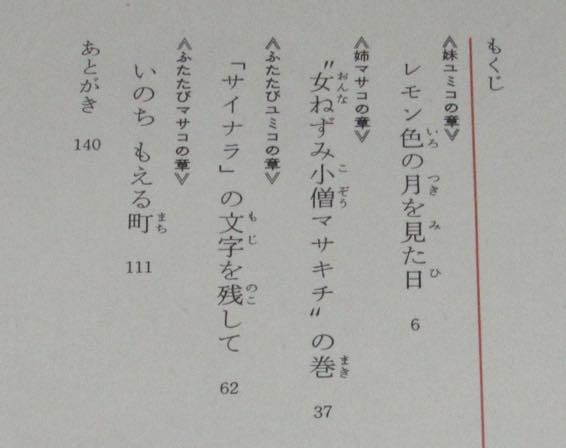 もくじ
《妹ユミコの章》
レモン色の月を見た日 6
《姉マサコの章》
〝女ねずみ小僧マサキチ〟の巻 37
《ふたたびユミコの章》
「サイナラ」の文字を残して 62
《ふたたびマサコの章》
いのち もえる町 111
あとがき 140